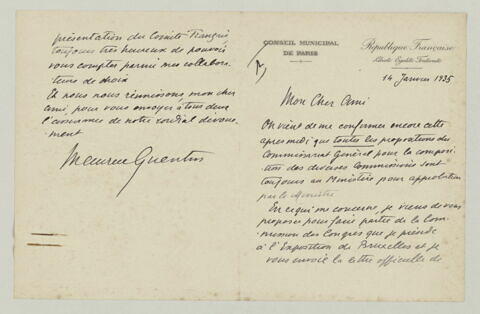 CONSEIL MUNICIPAL
DE PARIS
République Française
Liberté Égalité Fraternité
14 Janvier 1935
Mon Cher Ami
On vient de me confirmer encore cette
après midi que toutes les propositions du
Commissariat Général pour la composi
tion des diverses Commissions sont
toujours au Ministère pour approbation
par le Ministre.
En ce qui me concerne, je viens de vous
proposer pour faire partie de la Com
mission des Congrès que je préside
à l'Exposition de Bruxelles et je
vous envoie la lettre officielle de
présentation du Comité Français
toujours très heureux de pouvoir
vous compter parmi mes collabora
teurs de choix
Et nous nous réunissons mon cher
ami, pour vous envoyer à tous deux
l'assurance de notre cordial dévoue
ment
Maurice Quentin